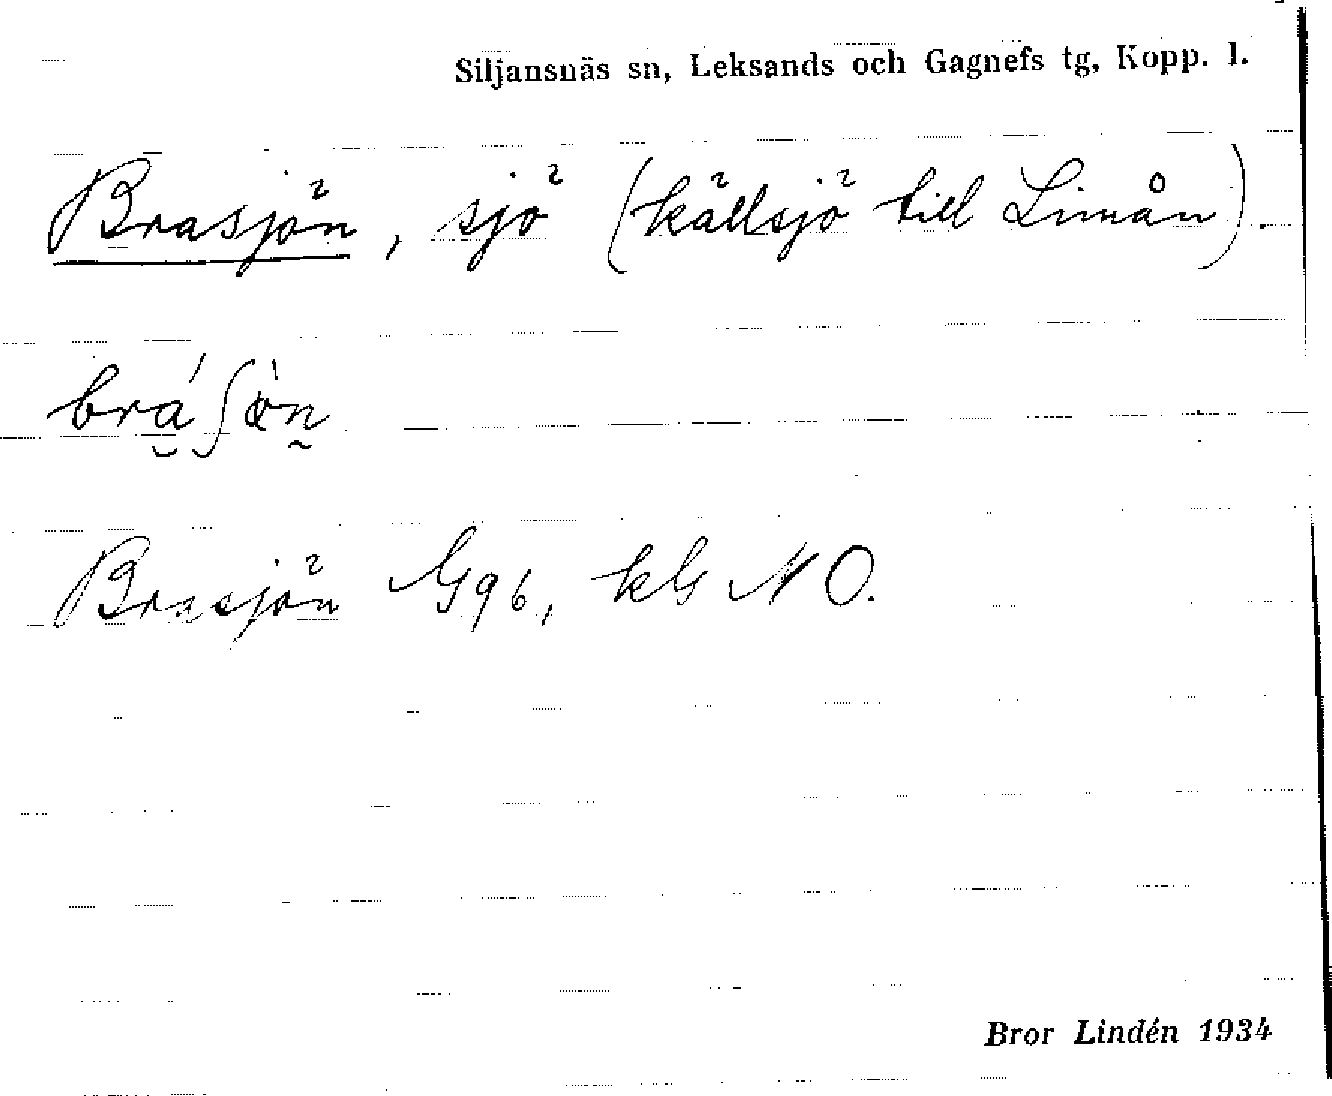 Siljansnäs sn, Leksands och Gagnefs tg, Kopp. l.
Brasjön, sjö (källsjö till Limån).
Brasjön G96, kG NO.
Bror Lindén 1934